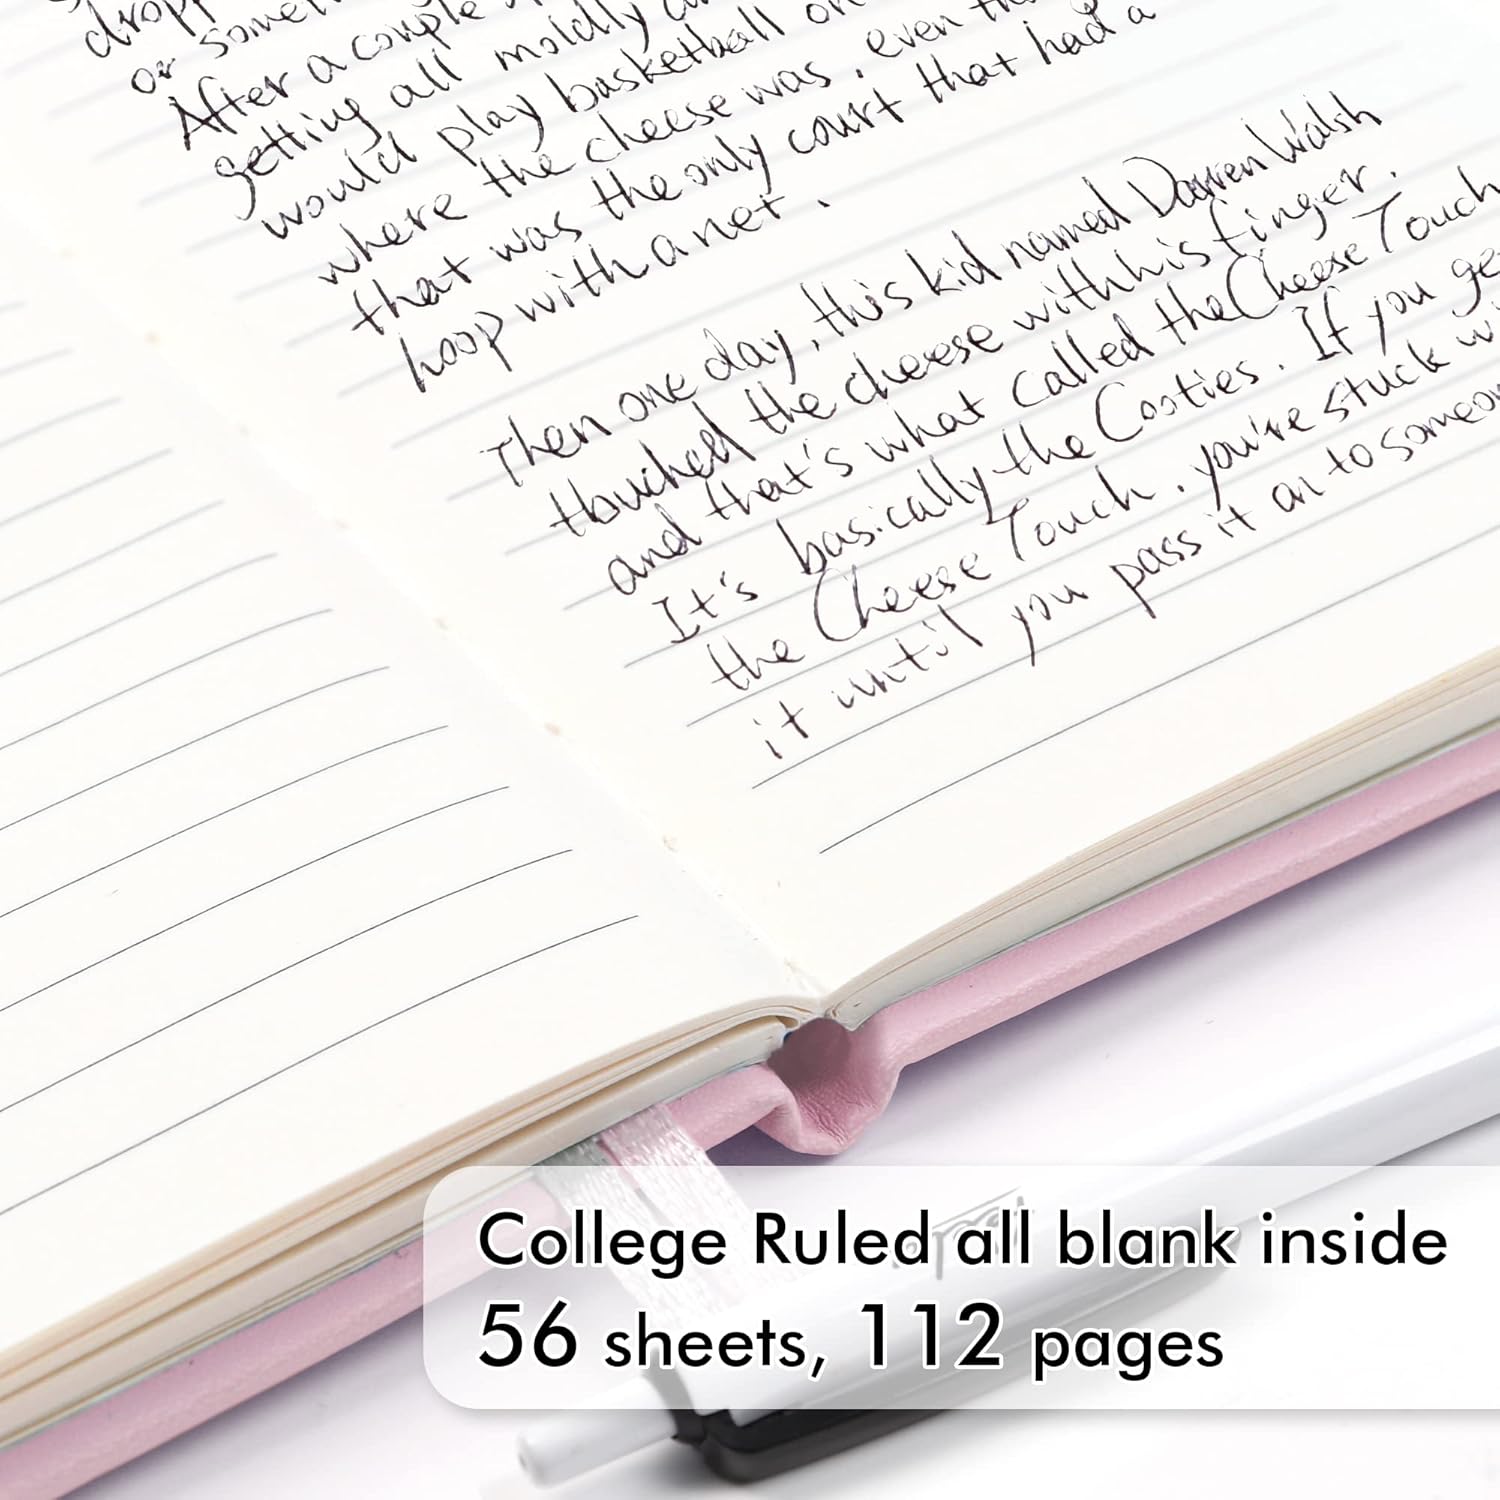 dropp
or somet
After a couple
getting all moldly an
would play basketball on
where the cheese was, even th
that was the only court that had a
hoop with a net.
Then one day, this kid named Darren Walsh
tbuched the cheese with his finger.
and that's what called the Cheese Touch
It's basically the Cooties. If you ge
the Cheese Touch, you're stuck wi
it until you pass it on to someon
College Ruled all blank inside
56 sheets, 112 pages